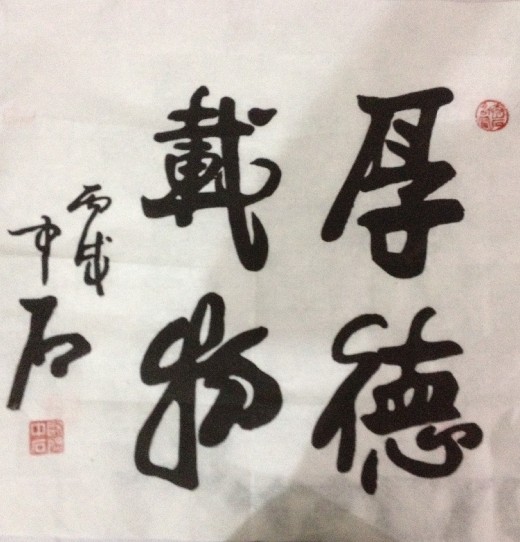 厚德
載物
丙戌
中石